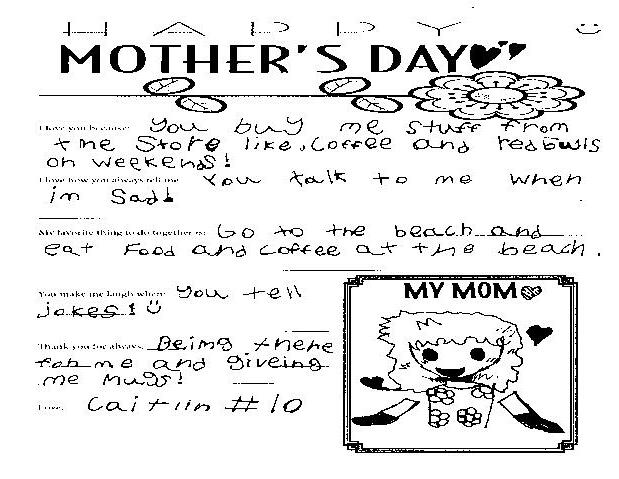 HAPPY :)
MOTHER'S DAY
I love you because: You buy me stuff from
the Store like, Coffee and redbulls
on weekends!
I love how you always tell me You talk to me when
im Sad!
My favorite thing to do together is: Go to the beach and
eat Food and Coffee at the beach.
You make me laugh when: You tell
jokes! :)
Thank you for always: Being there
for me and giveing
me Hugs!
Love, Caitlin #10
MY MOM